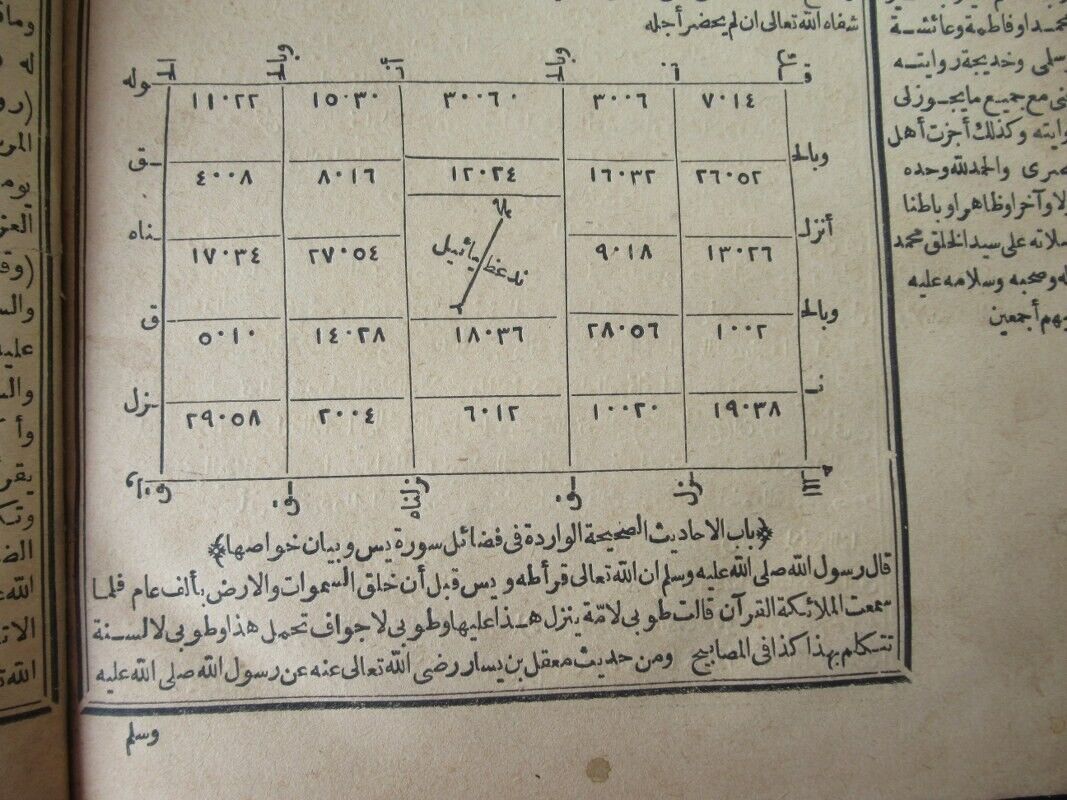 شفاه الله تعالى ان لم يحضر أجله
قوله
وبالحق
أنزلناه
وبالحق
نزل
٧٠١٤ ٣٠٠٦ ٣٠٠٦٠ ١٥٠٣٠ ١١٠٢٢
٢٦٠٥٢ ١٦٠٣٢ ١٢٠٢٤ ٨٠١٦ ٤٠٠٨
١٣٠٢٦ ٩٠١٨ ٢٧٠٥٤ ١٧٠٣٤
يائيل
١٠٠٢ ٢٨٠٥٦ ١٨٠٣٦ ١٤٠٢٨ ٥٠١٠
١٩٠٣٨ ١٠٠٢٠ ٦٠١٢ ٢٠٠٤ ٢٩٠٥٨
﴿باب الاحاديث الصحيحة الواردة فى فضائل سورة يس وبيان خواصها﴾
قال رسول الله صلى الله عليه وسلم ان الله تعالى قرأ طه ويس قبل أن خلق السموات والارض بألف عام فلما
سمعت الملائكة القرآن قالت طوبى لامّة ينزل هذا عليها وطوبى لاجواف تحمل هذا وطوبى لالسنة
تتكلم بهذا كذا فى المصابيح ومن حديث معقل بن يسار رضى الله تعالى عنه عن رسول الله صلى الله عليه
وسلم
محمد او فاطمة وعائشة
وسلمى وخديجة روايته
مع جميع ما يجوز لى
وكذلك أجزت أهل
والحمد لله وحده
وآخرا وظاهرا وباطنا
على سيد الخلق محمد
وصحبه وسلامه عليه
أجمعين